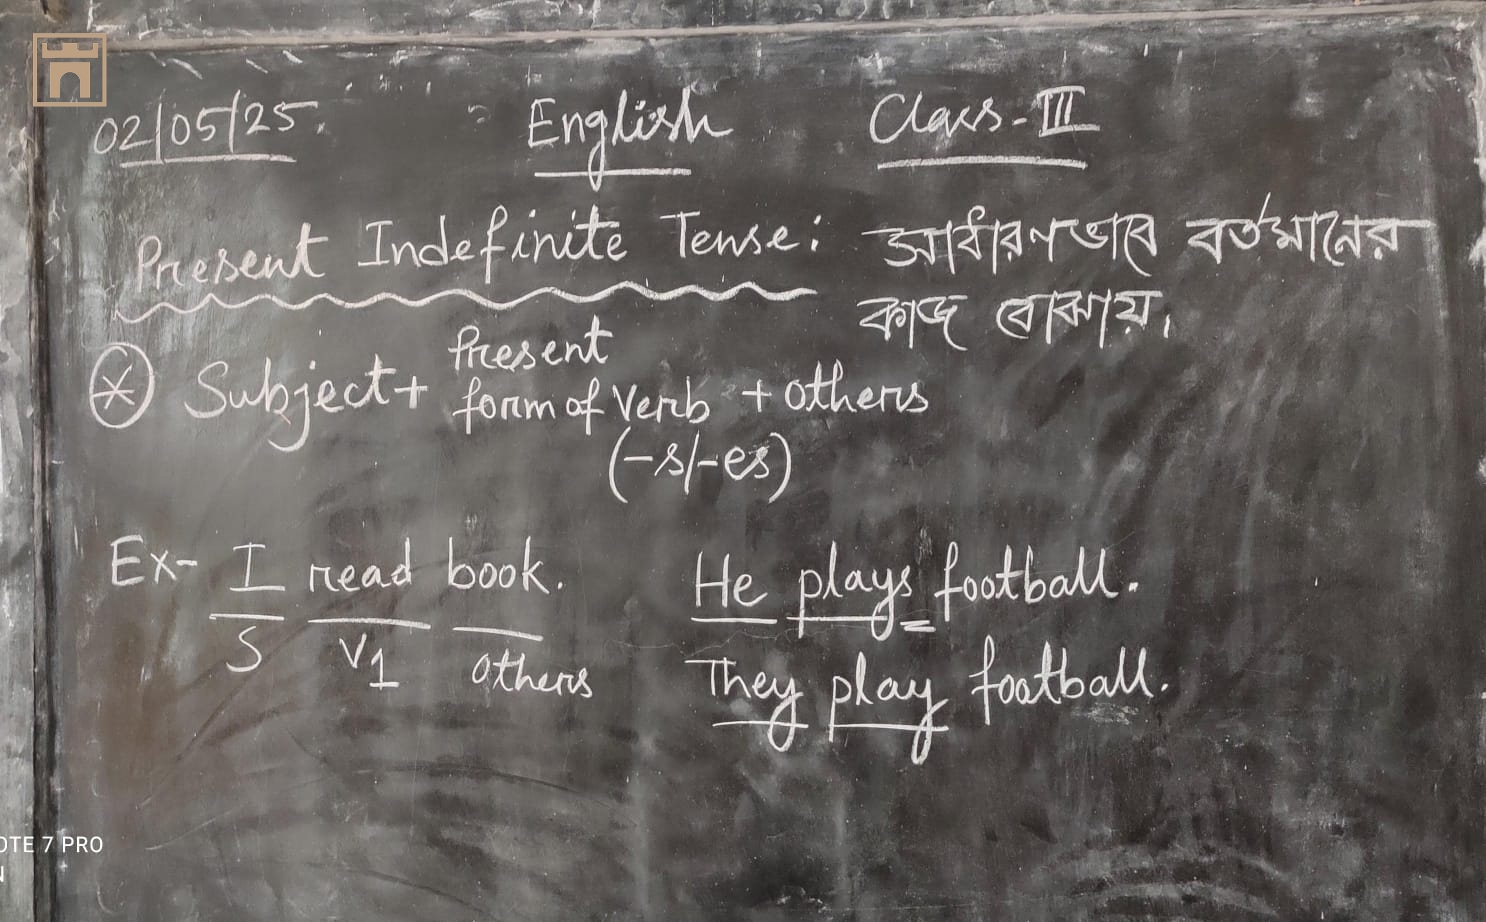 02/05/25 English Class-III
Present Indefinite Tense: সাধারণভাবে বর্তমানের
কাজ বোঝায়।
Present
Subject+ form of Verb + others
(-s/-es)
Ex- I read book. He plays football.
S V1 others
They play football.
OTE 7 PRO
N